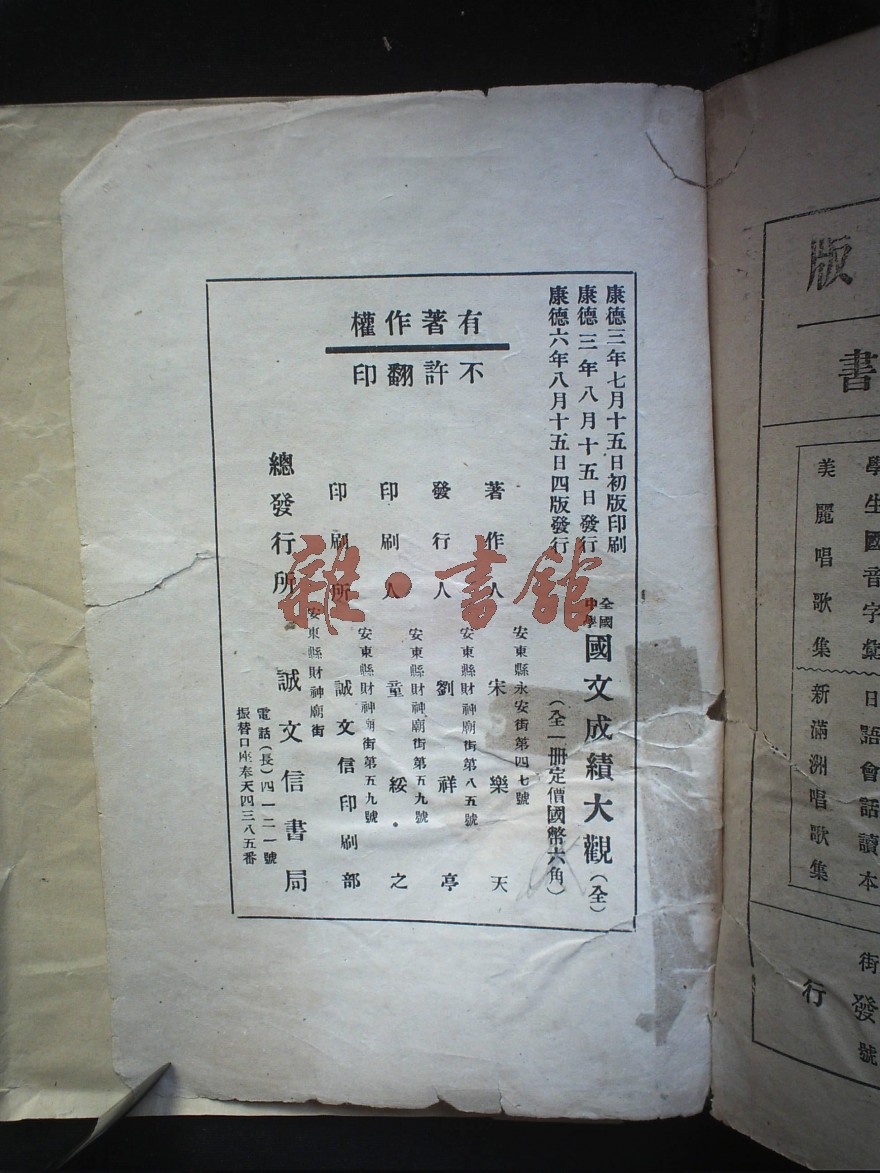 康德三年七月十五日初版印刷
康德三年八月十五日發行
康德六年八月十五日四版發行
有著作權
不許翻印
全國中學
國文成績大觀（全）
（全一冊定價國幣六角）
安東縣永安街第四七號
著作人 宋樂天
安東縣財神廟街第八五號
發行人 劉祥亭
安東縣財神廟街第五九號
印刷人 童綏之
安東縣財神廟街第五九號
印刷所 誠文信印刷部
安東縣財神廟街
總發行所 誠文信書局
電話（長）四一二一號
振替口座奉天四三八五番
雜·書館
版
書
學生國音字彙
日語會話讀本
美麗唱歌集
新滿洲唱歌集
街
號
發
行